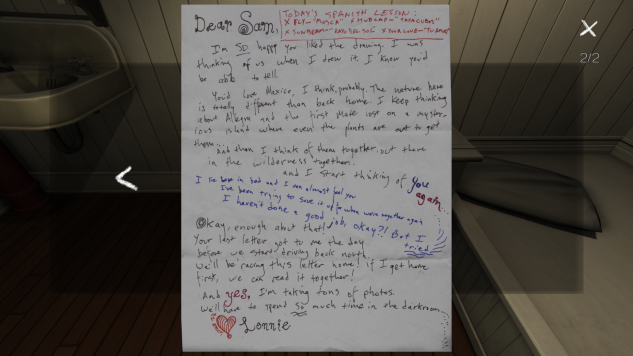 Dear Sam,
TODAY'S SPANISH LESSON:
X FLY="MOSCA" X MUDCAP=
X SUNBEAM="RAYO DEL SOL" X YOUR LOVE="TU AMOR"
I'm SO happy you liked the drawing. I was
thinking of us when I drew it. I knew you'd
be able to tell.
You'd love Mexico, I think, probably. The nature here
is totally different than back home. I keep thinking
about Allegra and the First Mate lost on a myster-
ious island where even the plants are out to get
them...
And then I think of them together out there
in the wilderness together!
and I start thinking of you
again.
I lie here in bed and I can almost feel you
I've been trying to save it up for when we're together again
I haven't done a good job, okay?! But I
tried
Okay, enough about that!
Your last letter got to me the day
before we start driving back north.
We'll be racing this letter home! if I get home
first, we can read it together!
And yes, I'm taking tons of photos.
We'll have to spend so much time in the darkroom.
Lonnie
2/2